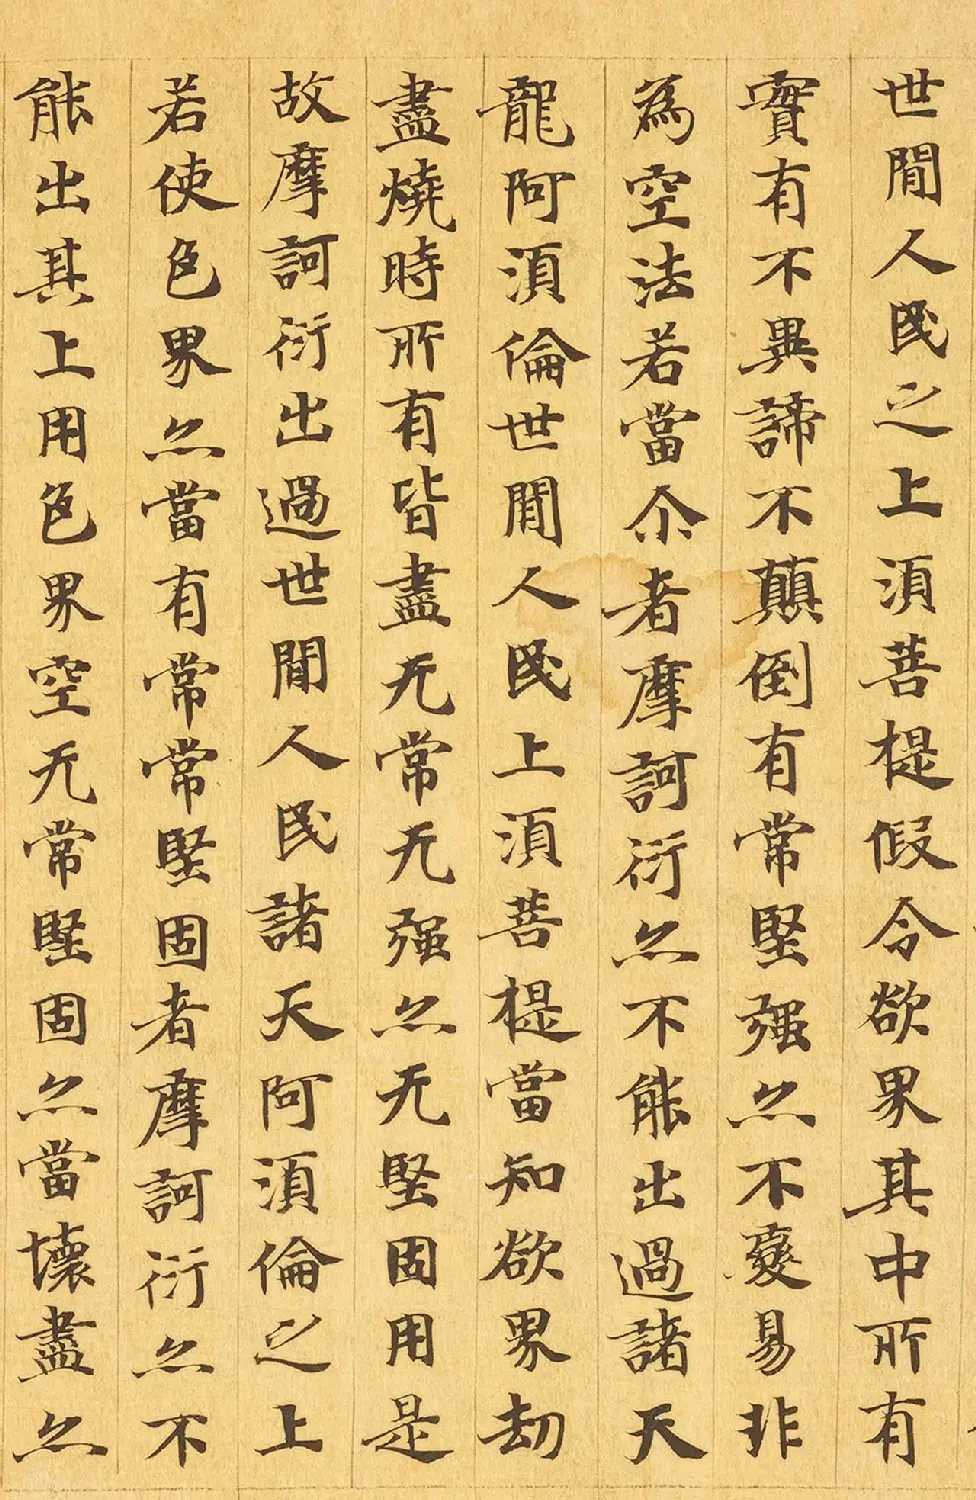 世閒人民之上須菩提假令欲界其中所有
實有不異諦不顛倒有常堅强亦不變易非
為空法若當尒者摩訶衍亦不能出過諸天
龍阿須倫世閒人民上須菩提當知欲界劫
盡燒時所有皆盡无常无强亦无堅固用是
故摩訶衍出過世閒人民諸天阿須倫之上
若使色界亦當有常常堅固者摩訶衍亦不
能出其上用色界空无常堅固亦當壞盡亦